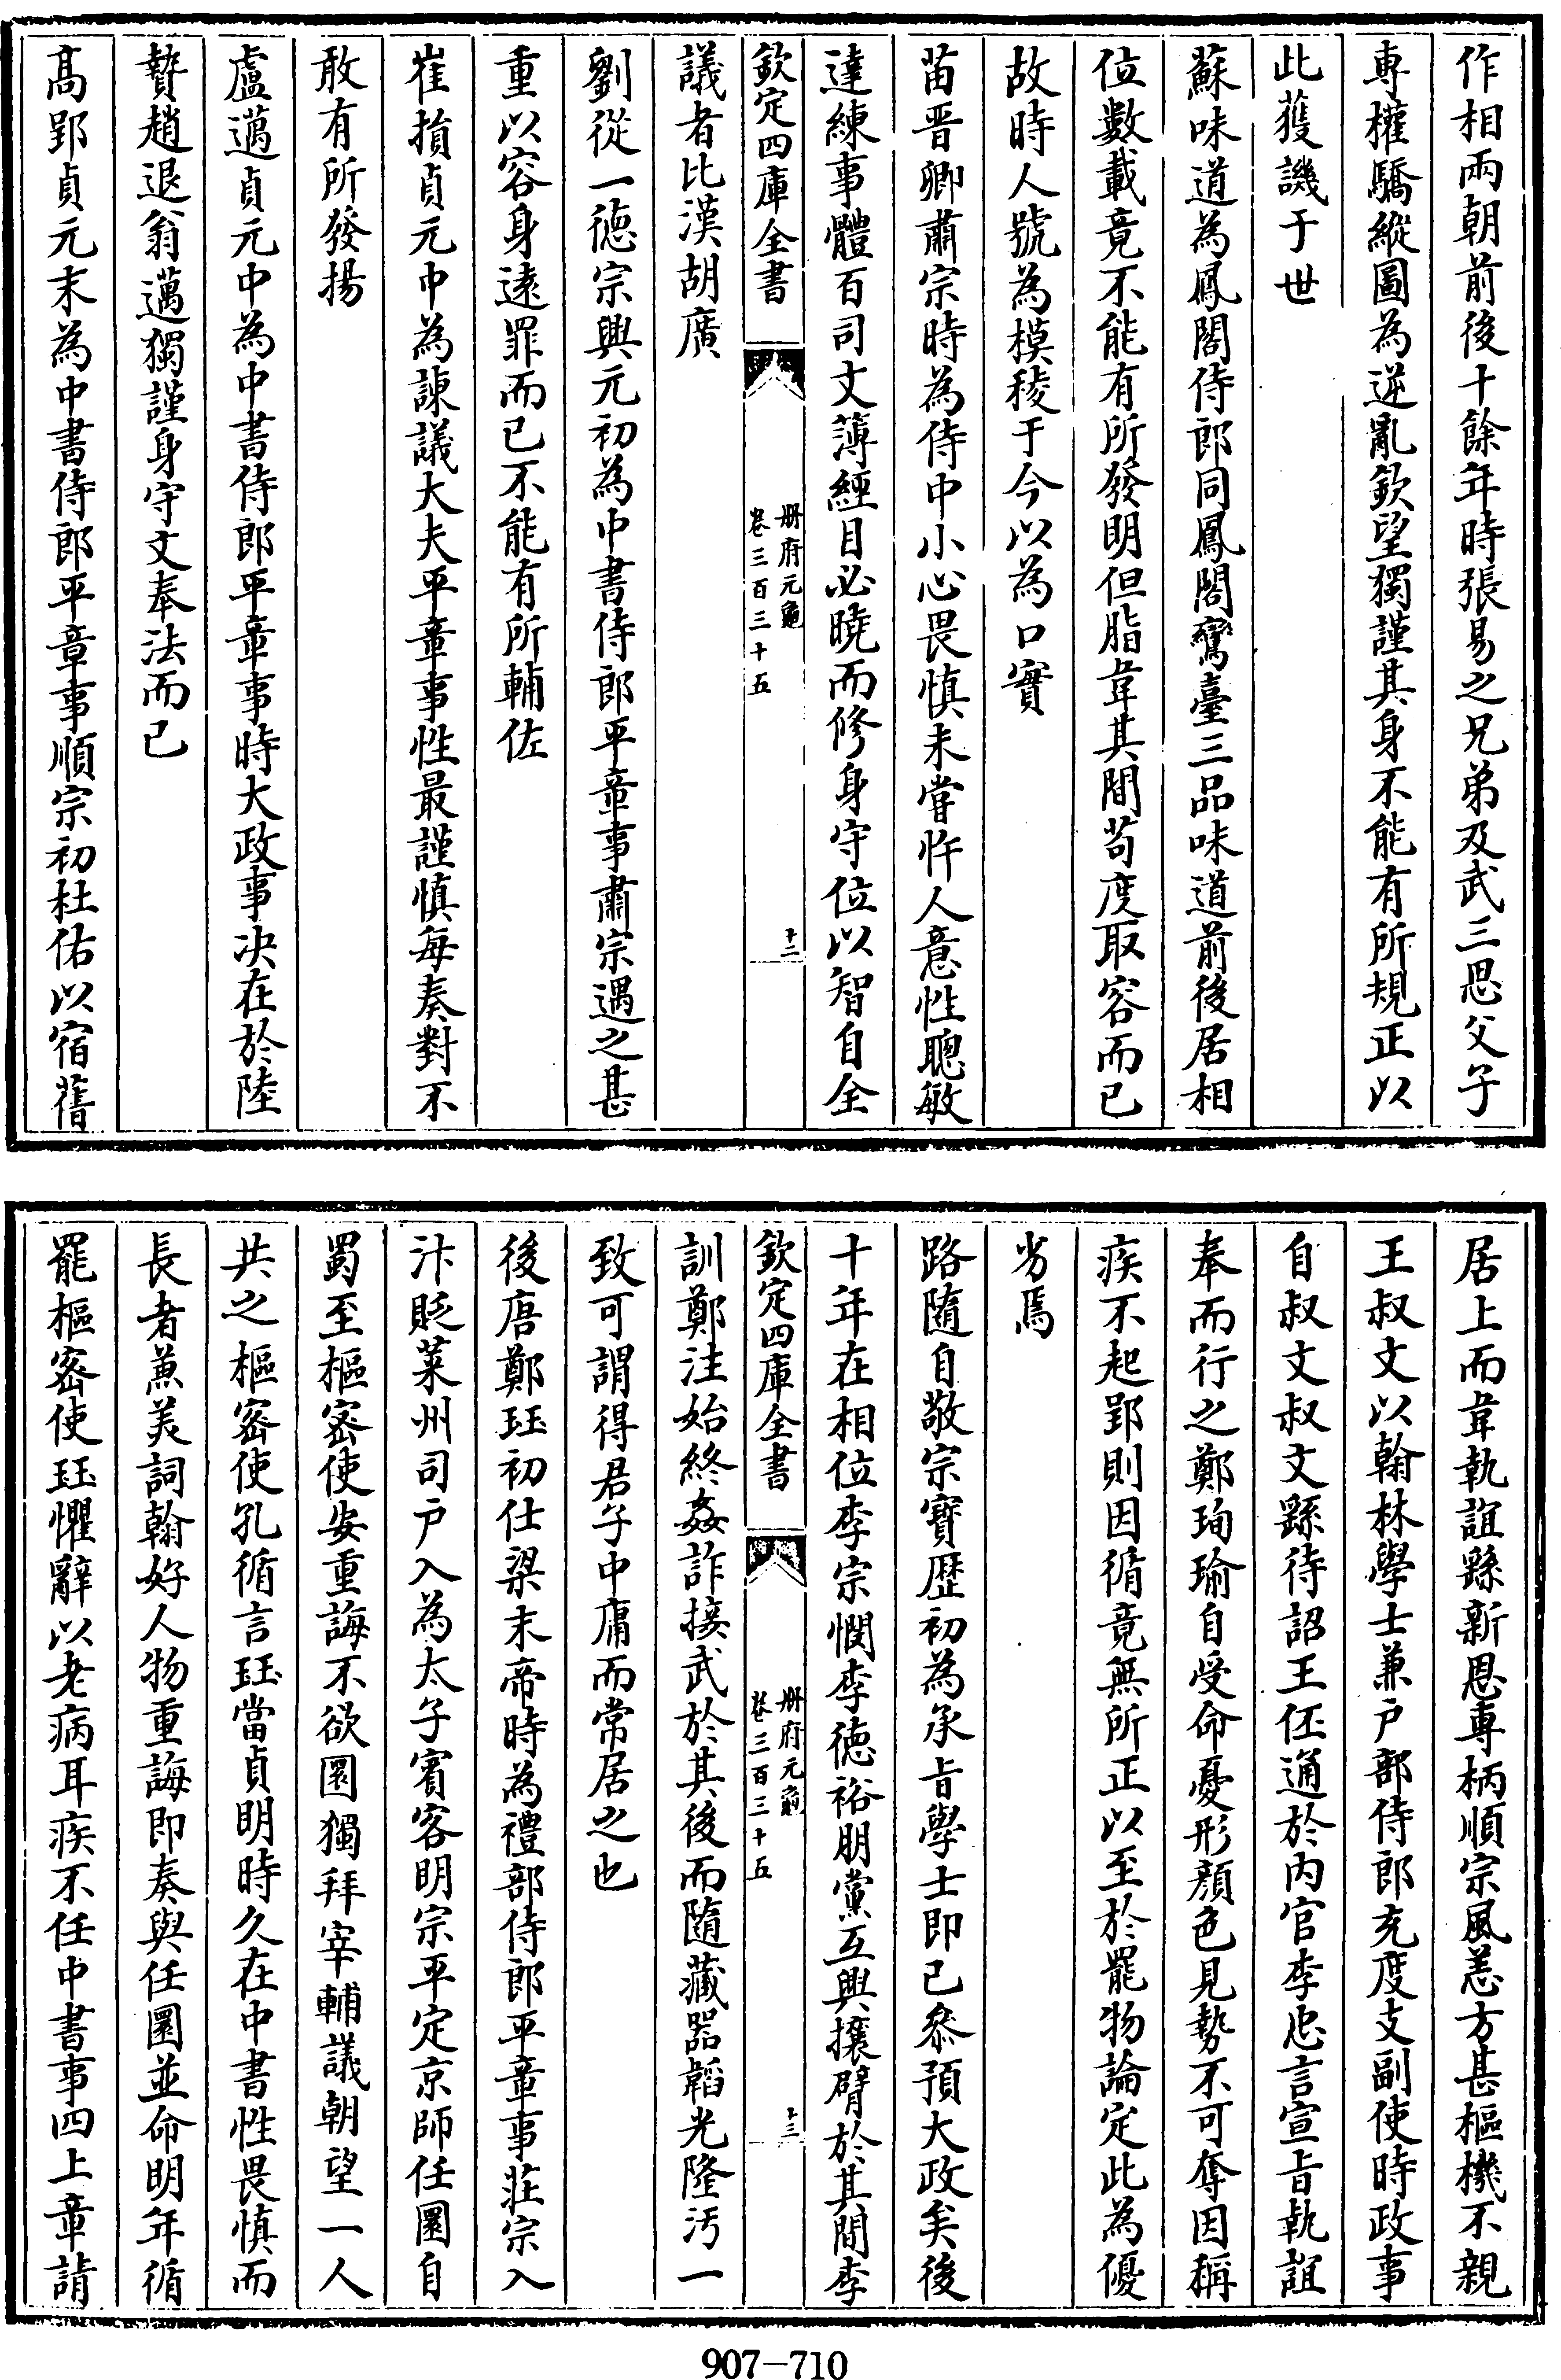 作相兩朝前後十餘年時張易之兄弟及武三思父子
專權驕縱圖為逆亂欽望獨謹其身不能有所規正以
此獲譏于世
蘇味道為鳳閣侍郎同鳳閣鸞臺三品味道前後居相
位數載竟不能有所發明但脂韋其間苟度取容而已
故時人號為模稜于今以為口實
苗晋卿肅宗時為侍中小心畏慎未嘗忤人意性聰敏
達練事體百司文薄經目必曉而修身守位以智自全
欽定四庫全書
册府元龜
卷三百三十五
十二
議者比漢胡廣
劉從一德宗興元初為中書侍郎平章事肅宗遇之甚
重以容身遠罪而已不能有所輔佐
崔損貞元中為諫議大夫平章事性最謹慎每奏對不
敢有所發揚
盧邁貞元中為中書侍郎平章事時大政事决在於陸
贄趙退翁邁獨謹身守文奉法而已
高郢貞元末為中書侍郎平章事順宗初杜佑以宿舊
居上而韋執誼繇新恩專柄順宗風恙方甚樞機不親
王叔文以翰林學士兼户部侍郎充度支副使時政事
自叔文叔文繇待詔王伾通於内官李忠言宣旨執誼
奉而行之鄭珣瑜自受命憂形顔色見勢不可奪因稱
疾不起郢則因循竟無所正以至於罷物論定此為優
劣焉
路隨自敬宗寶歴初為承旨學士即已叅預大政矣後
十年在相位李宗憫李德裕朋黨互興攘臂於其間李
欽定四庫全書
册府元龜
卷三百三十五
十三
訓鄭注始終姦詐接武於其後而隨藏器韜光隆汚一
致可謂得君子中庸而常居之也
後唐鄭珏初仕梁末帝時為禮部侍郎平章事莊宗入
汴貶萊州司户入為太子賓客明宗平定京師任圜自
蜀至樞密使安重誨不欲圜獨拜宰輔議朝望一人
共之樞密使孔循言珏當貞明時久在中書性畏慎而
長者兼美詞翰好人物重誨即奏與任圜並命明年循
罷樞密使珏懼辭以老病耳疾不任中書事四上章請
907-710